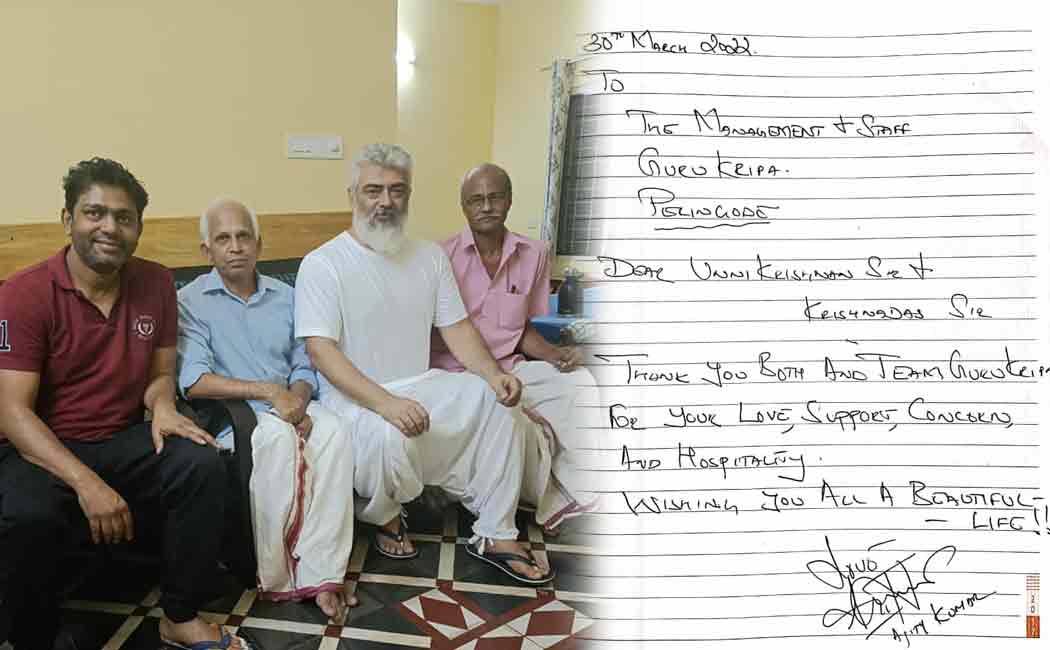 30TH MARCH 2022.
TO
THE MANAGEMENT & STAFF
GURU KRIPA.
PERINGODE
DEAR UNNIKRISHNAN SIR &
KRISHNADAS SIR
THANK YOU BOTH AND TEAM GURU KRIPA
FOR YOUR LOVE, SUPPORT, CONCERN,
AND HOSPITALITY.
WISHING YOU ALL A BEAUTIFUL
– LIFE!!
LOVE
AJITH KUMAR
1